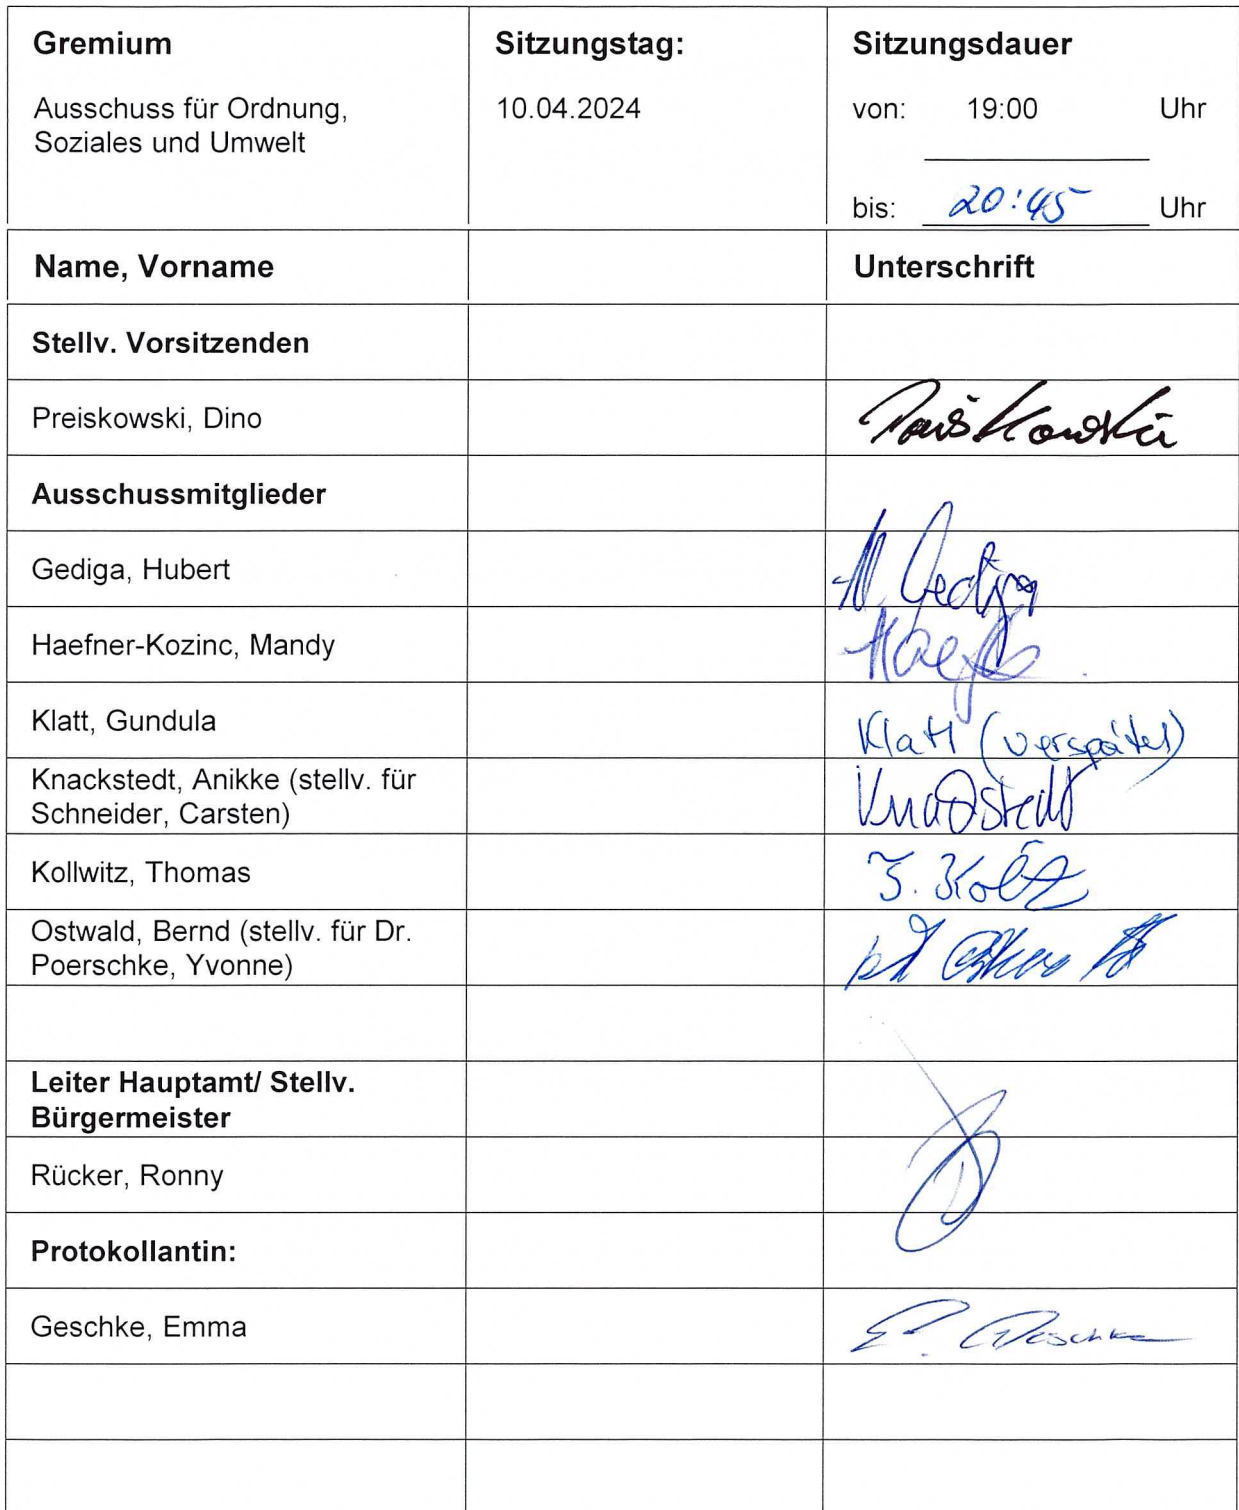 Gremium
Ausschuss für Ordnung,
Soziales und Umwelt
Sitzungstag:
10.04.2024
Sitzungsdauer
von: 19:00 Uhr
bis: 20:45 Uhr
Name, Vorname
Unterschrift
Stellv. Vorsitzenden
Preiskowski, Dino
Ausschussmitglieder
Gediga, Hubert
H. Gediga
Haefner-Kozinc, Mandy
Klatt, Gundula
Klatt (verspätet)
Knackstedt, Anikke (stellv. für
Schneider, Carsten)
Knackstedt
Kollwitz, Thomas
Ostwald, Bernd (stellv. für Dr.
Poerschke, Yvonne)
Leiter Hauptamt/ Stellv.
Bürgermeister
Rücker, Ronny
Protokollantin:
Geschke, Emma
E. Geschke